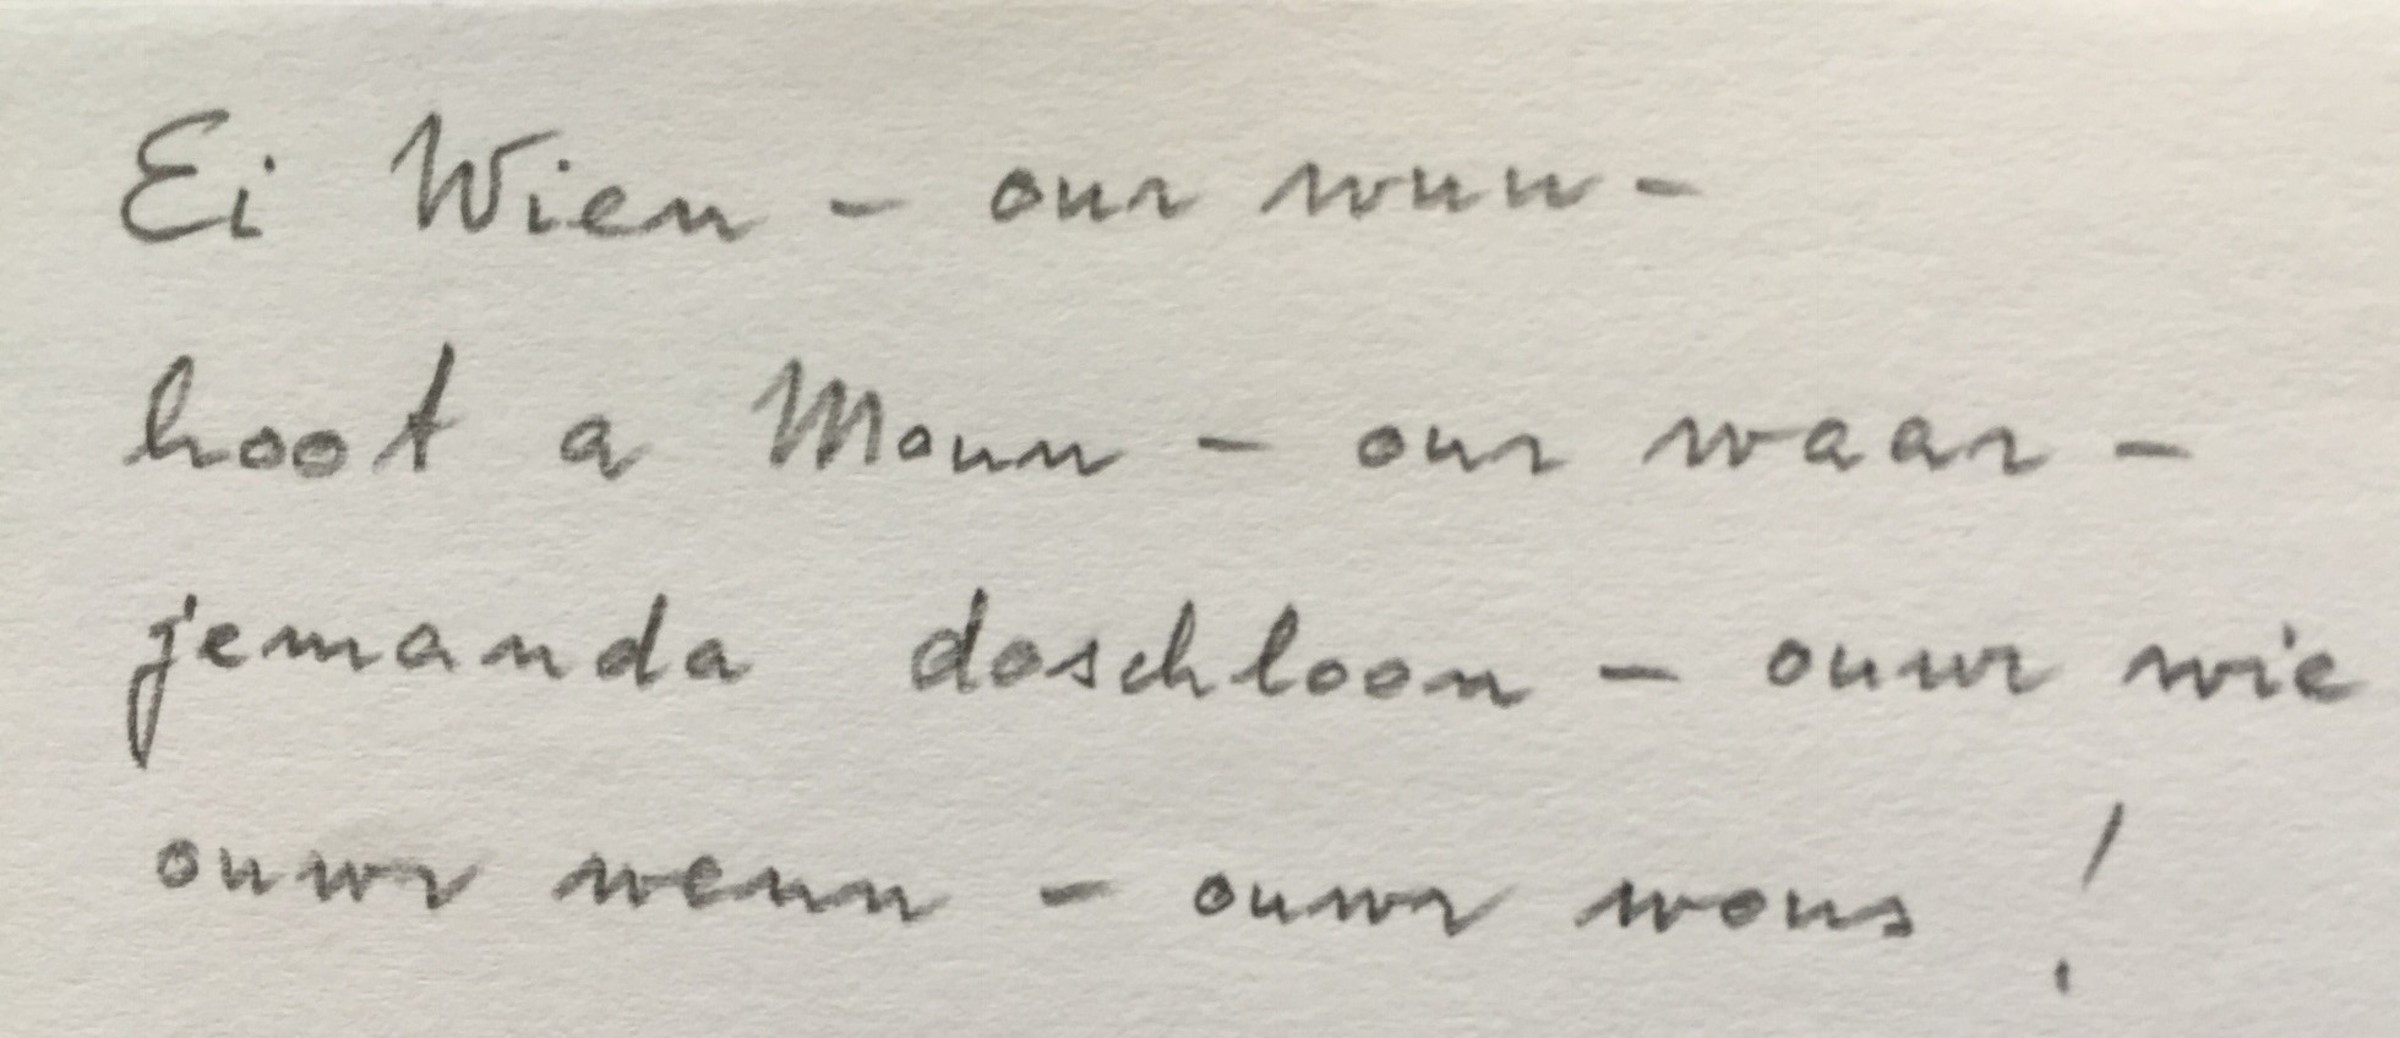 Ei Wien - our wuu -
hoot a Moun - our waar -
jemanda doschloon - ouwr wie
ouwr wenn - ouwr wous !